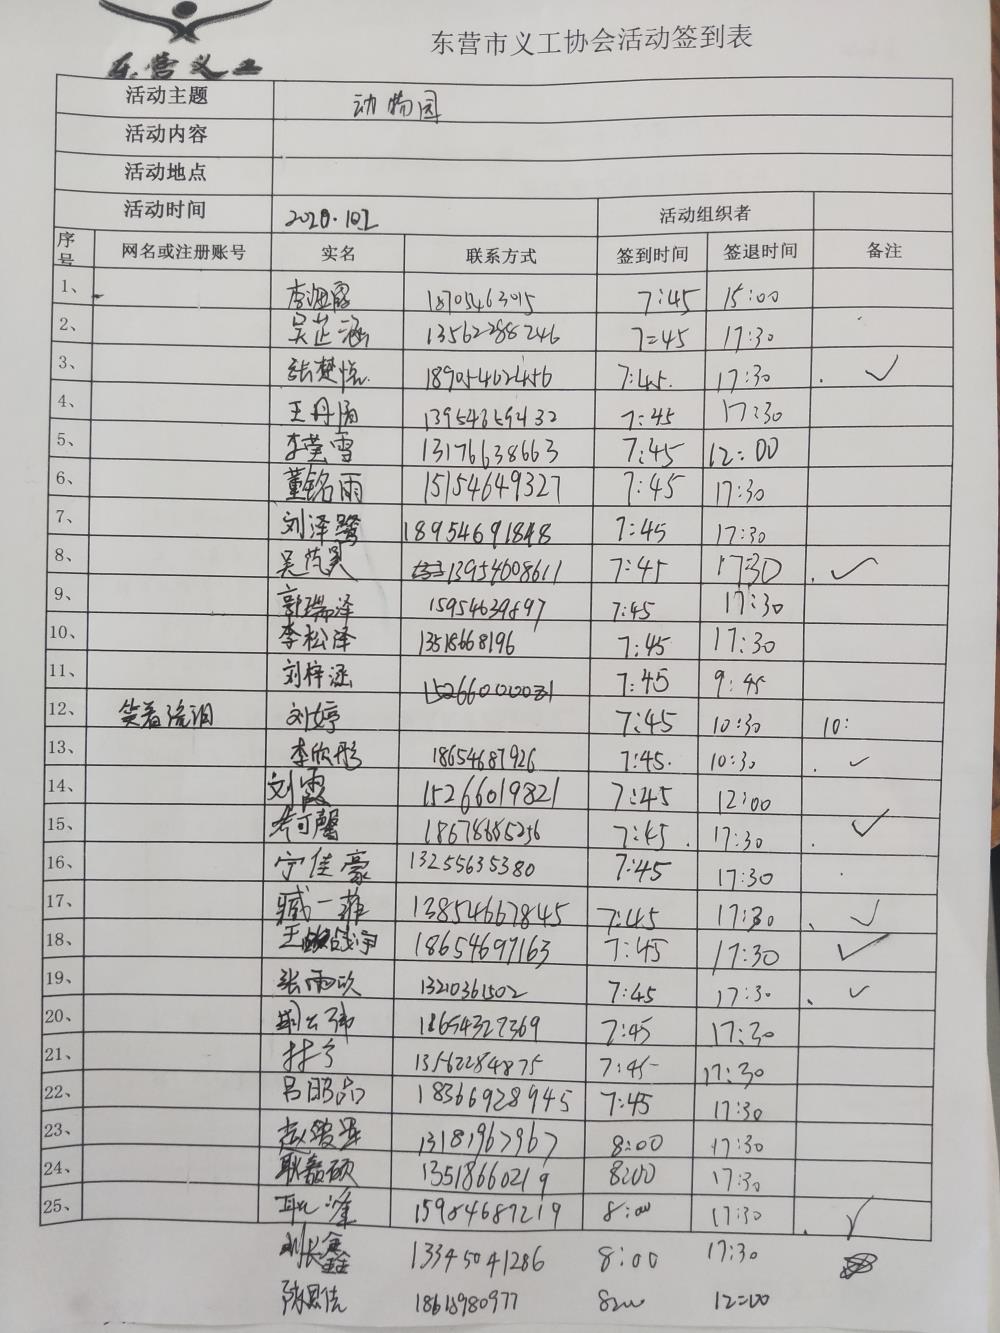 东营义工
东营市义工协会活动签到表
活动主题 动物园
活动内容
活动地点
活动时间 2020.10.2 活动组织者
序号 网名或注册账号 实名 联系方式 签到时间 签退时间 备注
1、 18705463015 7:45 15:00
2、 吴芷涵 13562288246 7:45 17:30
3、 张楚悦 18905462456 7:45 17:30 ✓
4、 王丹 13954659432 7:45 17:30
5、 李莹雪 13176638663 7:45 12:00
6、 董铭雨 15154649327 7:45 17:30
7、 刘泽鹭 18954691848 7:45 17:30
8、 吴 13954608611 7:45 17:30 ✓
9、 郭瑞泽 15954639897 7:45 17:30
10、 李松泽 13518668196 7:45 17:30
11、 刘梓涵 7:45 9:45
12、 笑着流泪 刘婷 7:45 10:30 10:
13、 李欣彤 18654687926 7:45 10:30 ✓
14、 刘霞 15266019821 7:45 12:00
15、 可馨 18678685256 7:45 17:30 ✓
16、 宁佳豪 13255635380 7:45 17:30
17、 臧一菲 13854667845 7:45 17:30 ✓
18、 王 18654697163 7:45 17:30 ✓
19、 张雨欣 13210361502 7:45 17:30 ✓
20、 18654327369 7:45 17:30
21、 13562284875 7:45 17:30
22、 吕 18366928945 7:45 17:30
23、 赵 13181967967 8:00 17:30
24、 耿嘉硕 13518660219 8:00 17:30
25、 15984687219 8:00 17:30 ✓
鑫 13345041286 8:00 17:30
18615980977 8:00 12:00